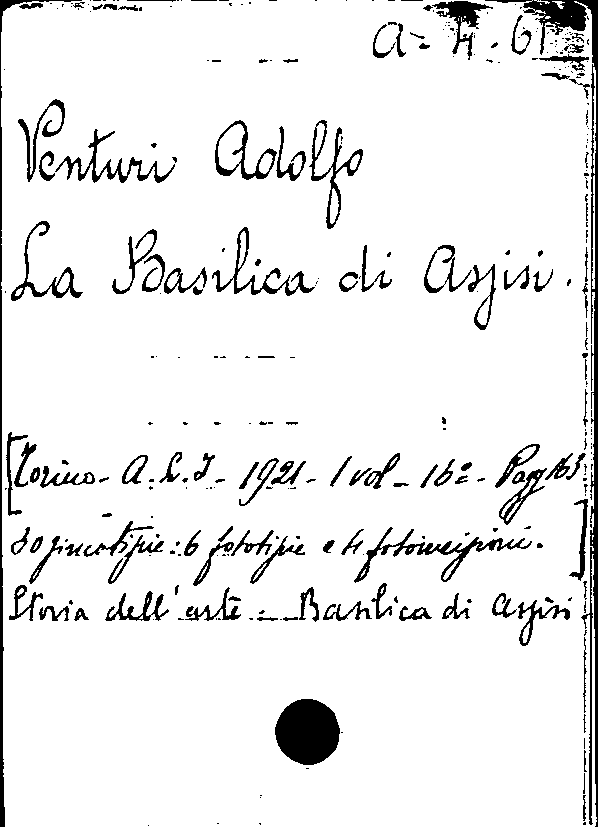 A - 4 - 61
Venturi Adolfo
La Basilica di Assisi.
[Torino - A. L. I - 1921 - 1 vol - 16º - Pagg 163
30 zincotipie: 6 fototipie e 4 fotoincisioni.]
Storia dell'arte - Basilica di Assisi.